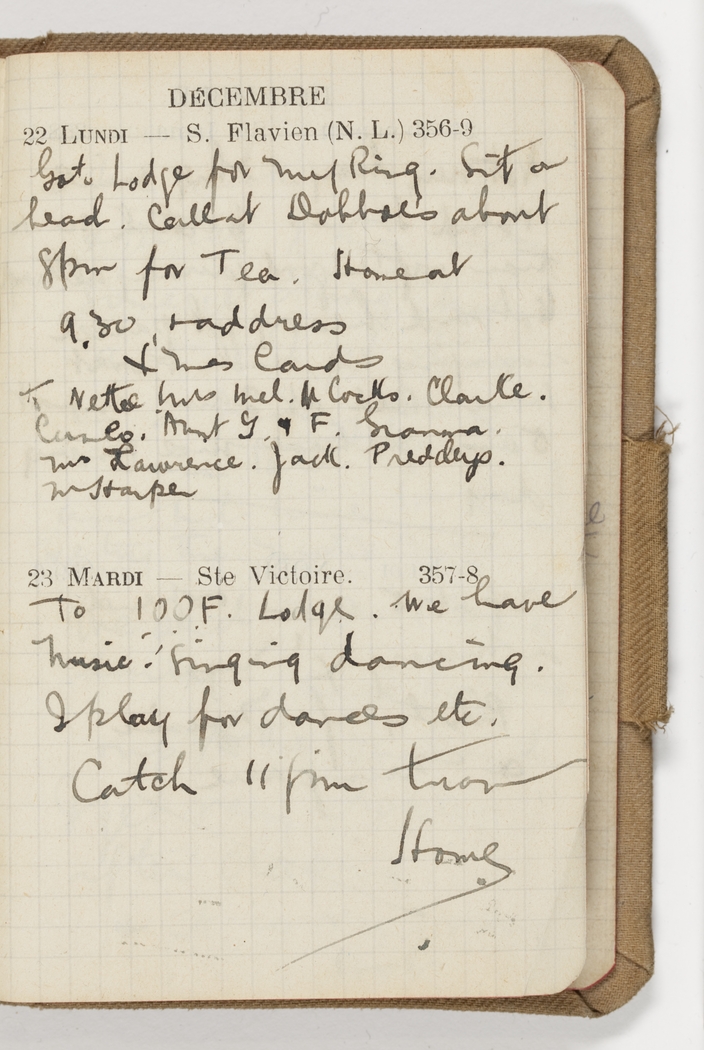 DÉCEMBRE
22 LUNDI — S. Flavien (N. L.) 356-9
Go to Lodge for my Ring. Sit a
head. Call at Dobbies about
8pm for Tea. Home at
9.30, + address
Xmas Cards
To Nettie Mrs Mel. H Cocks. Clarke.
Aunt G. & F. Gramma.
Mrs Lawrence. Jack. Preddys.
Mr Harper
23 MARDI — Ste Victoire. 357-8
To IOOF. Lodge. We have
music: singing dancing.
I play for dances etc.
Catch 11pm tram
Home